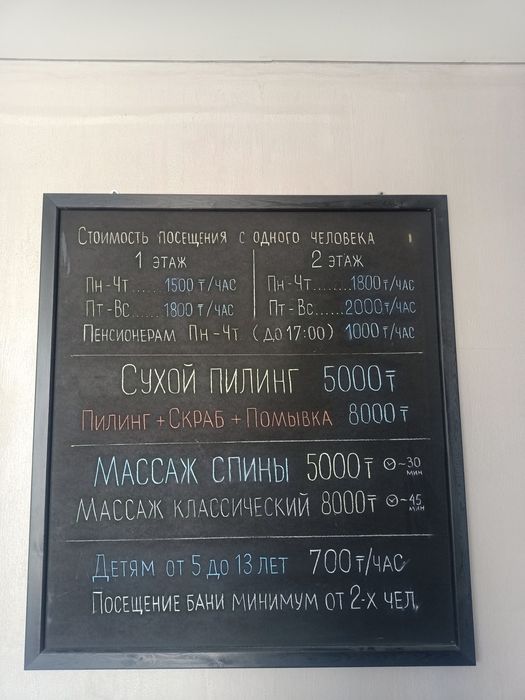 Стоимость посещения с одного человека
1 этаж
Пн-Чт......1500 ₸/час
Пт-Вс......1800 ₸/час
2 этаж
Пн-Чт........1800 ₸/час
Пт-Вс......2000 ₸/час
Пенсионерам Пн-Чт (до 17:00) 1000 ₸/час
Сухой пилинг 5000 ₸
Пилинг + Скраб + Помывка 8000 ₸
Массаж спины 5000 ₸ ~30 мин
Массаж классический 8000 ₸ ~45 мин
Детям от 5 до 13 лет 700 ₸/час
Посещение бани минимум от 2-х чел.